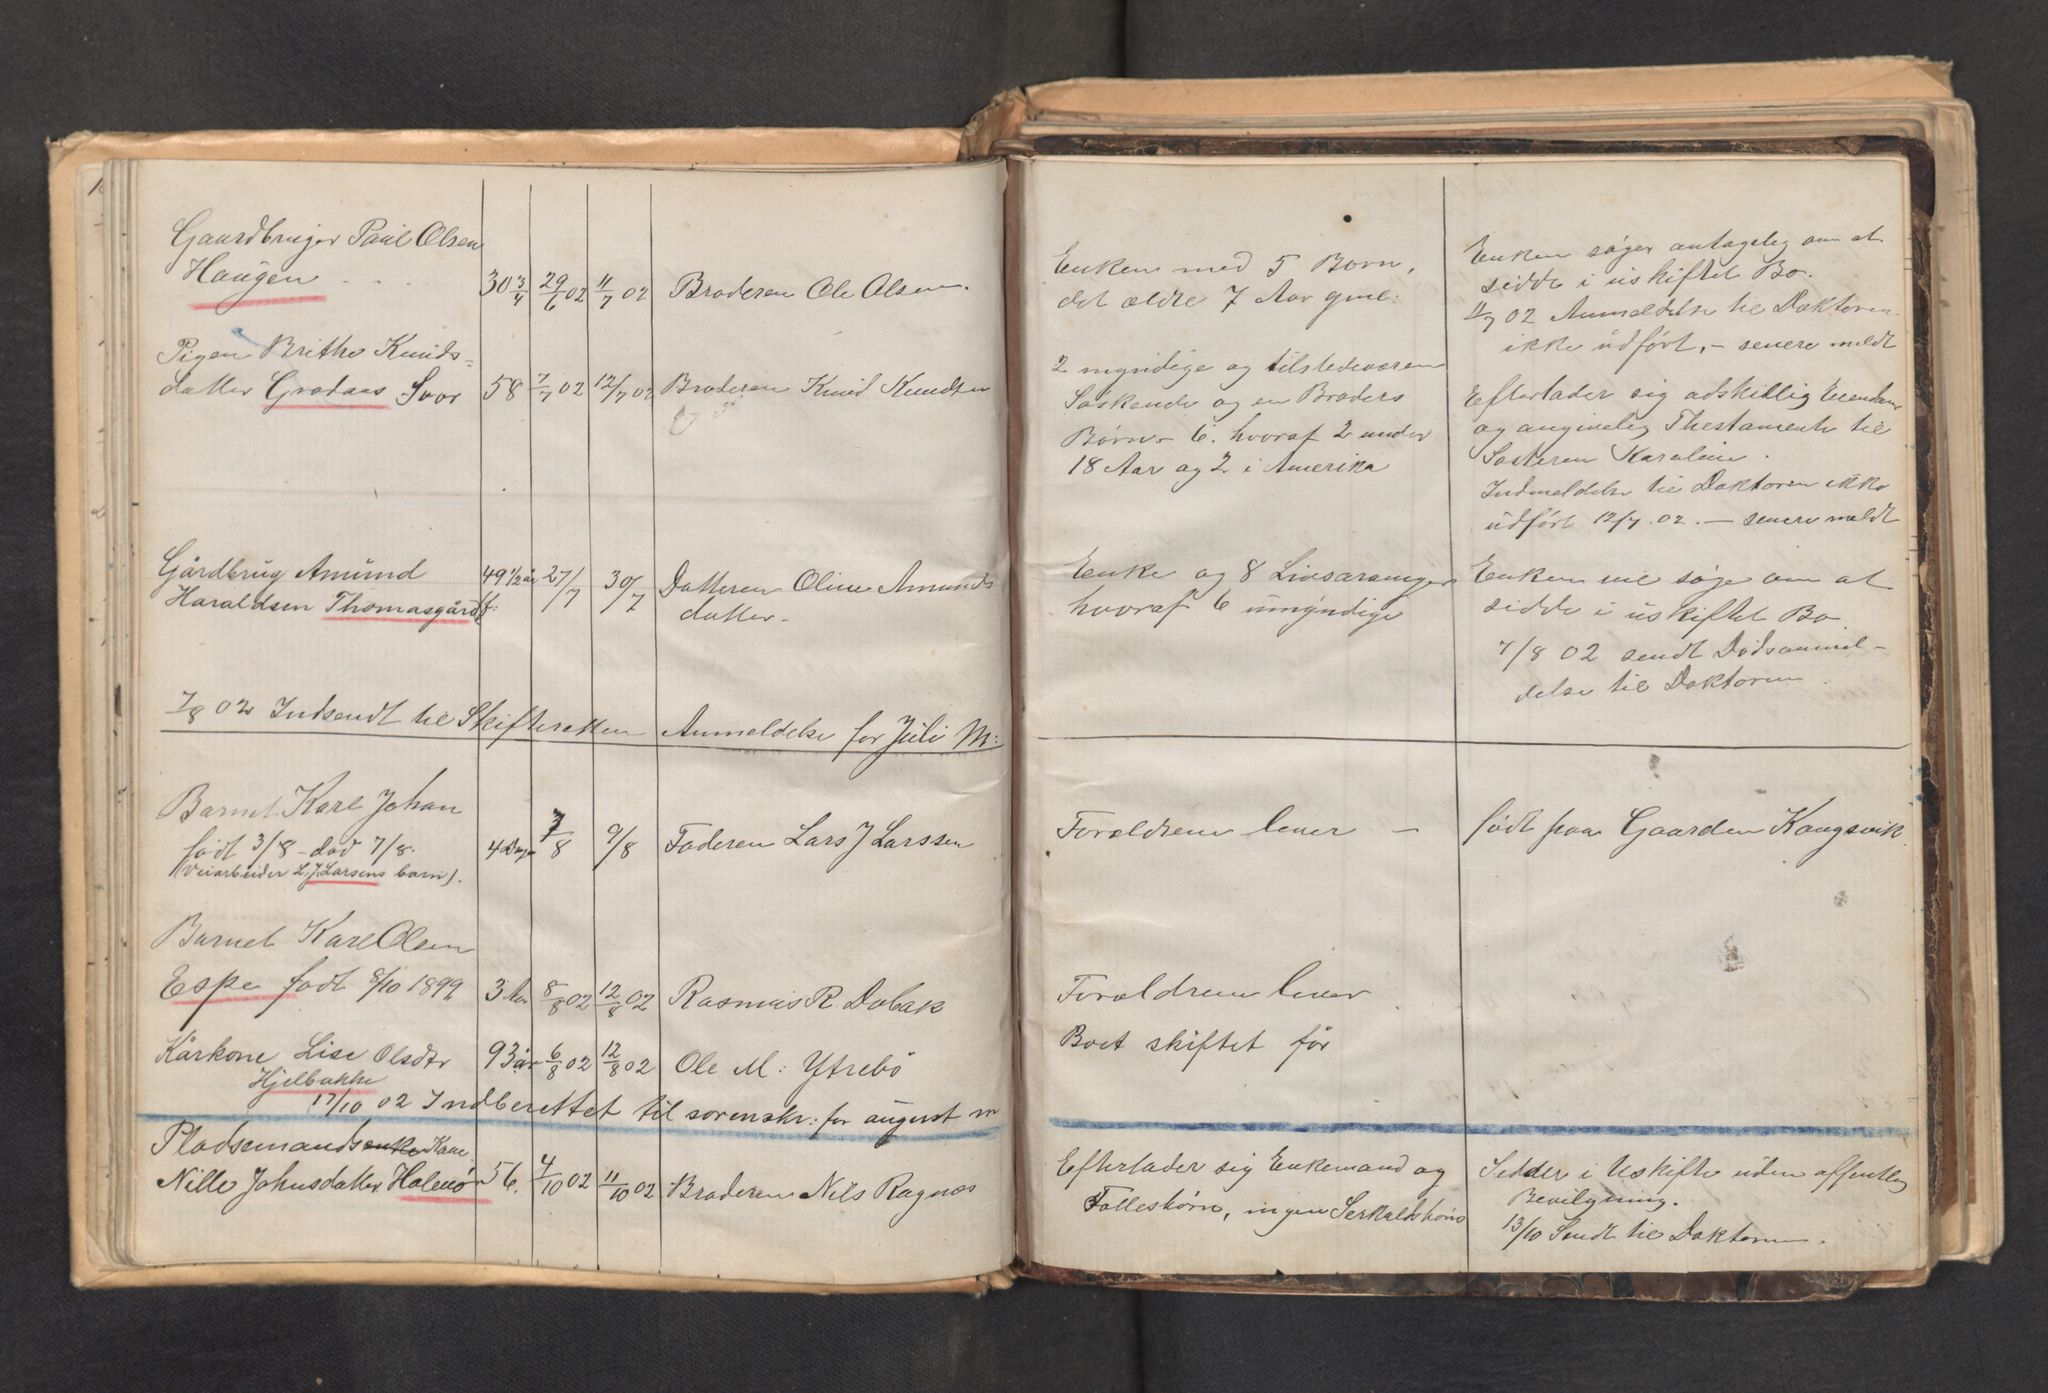 Gaardbruger Paul Olsen
Haugen
30 3/4 29/6 02 11/7 02 Broderen Ole Olsen.
Enken med 5 Børn,
det ældre 7 Aar gml:
Enken søger antagelig om at
sidde i uskiftet Bo.
11/7 02 Anmeldelse til Doktoren
ikke udført, – senere meldt
Pigen Brithe Knuds-
datter Grodaas Svor 58 7/7 02 12/7 02 Broderen Knud Knudsen
2 myndige og tilstedeværen
Søskende og en Broders
Børn – 6. hvoraf 2 under
18 Aar og 2 i Amerika
Efterlader sig adskillig Eiendom
og angivelig Thestamente til
Søsteren Karoline.
Indmeldelse til Doktoren ikke
udført 12/7 02. – senere meldt
Gårdbrug Amund
Haraldsen Thomasgård
49 1/2 år 27/7 30/7 Datteren Oline Amunds
datter.
Enke og 8 Livsarvinger
hvoraf 6 umyndige
Enken vil søge om at
sidde i uskiftet Bo
7/8 02 sendt Dødsanmel-
delse til Doktoren.
7/8 02 Indsendt til Skifteretten Anmeldelse for Juli M:
Barnet Karl Johan
født 3/8 – død 7/8.
(Veiarbeider L.J. Larsens barn).
4 Dage 7/8 9/8 Faderen Lars J Larssen
Forældrene lever –
født paa Gaarden Kongsvik.
Barnet Karl Olsen
Espe født 8/10 1899 3 Aar 8/8 02 12/8 02 Rasmus R. Dobak
Forældrene lever
Kårkone Lise Olsdtr 93 år 6/8 02 12/8 02 Ole M: Ytrebö
Hjelbakke
Boet skiftet før
17/10 02 Indberettet til sorenskr: for august m
Pladsemandsenke Kone
Nille Johnsdatter Holenö 56. 4/10 02 11/10 02 Broderen Nils Ragnøs
Efterlader sig Enkemand og
Fællesbørn, ingen Særkuldsbørn
Sedder i Uskifte uden offentlig
Bevilgning.
13/10 Sendt til Doktoren.